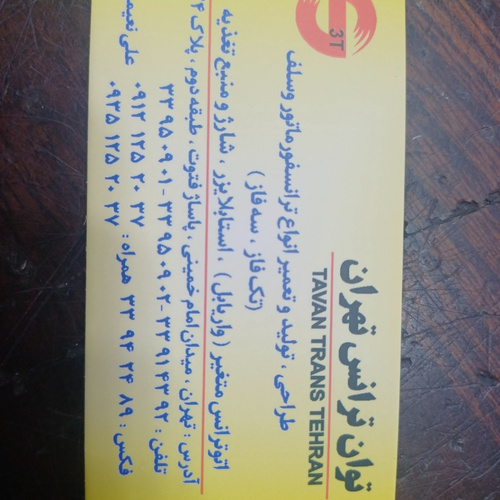 3T
توان ترانس تهران
TAVAN TRANS TEHRAN
طراحی ، تولید و تعمیر انواع ترانسفورماتور وسلف
(تک فاز ، سه فاز)
اتوترانس متغیر (واریابل) ، استابلایزر ، شارژ و منبع تغذیه
آدرس : تهران ، میدان امام خمینی ، پاساژ فتوت ، طبقه دوم ، پلاک
تلفن : ۳۳۹۱۴۳۹۲ - ۳۳۹۵۰۹۰۲ - ۳۳۹۵۰۹۰۱
علی نعیمی ۰۹۱۲ ۱۲۵ ۲۰ ۳۷
فکس : ۳۳ ۹۴ ۲۴ ۸۹ همراه : ۰۹۳۵ ۱۲۵ ۲۰ ۳۷